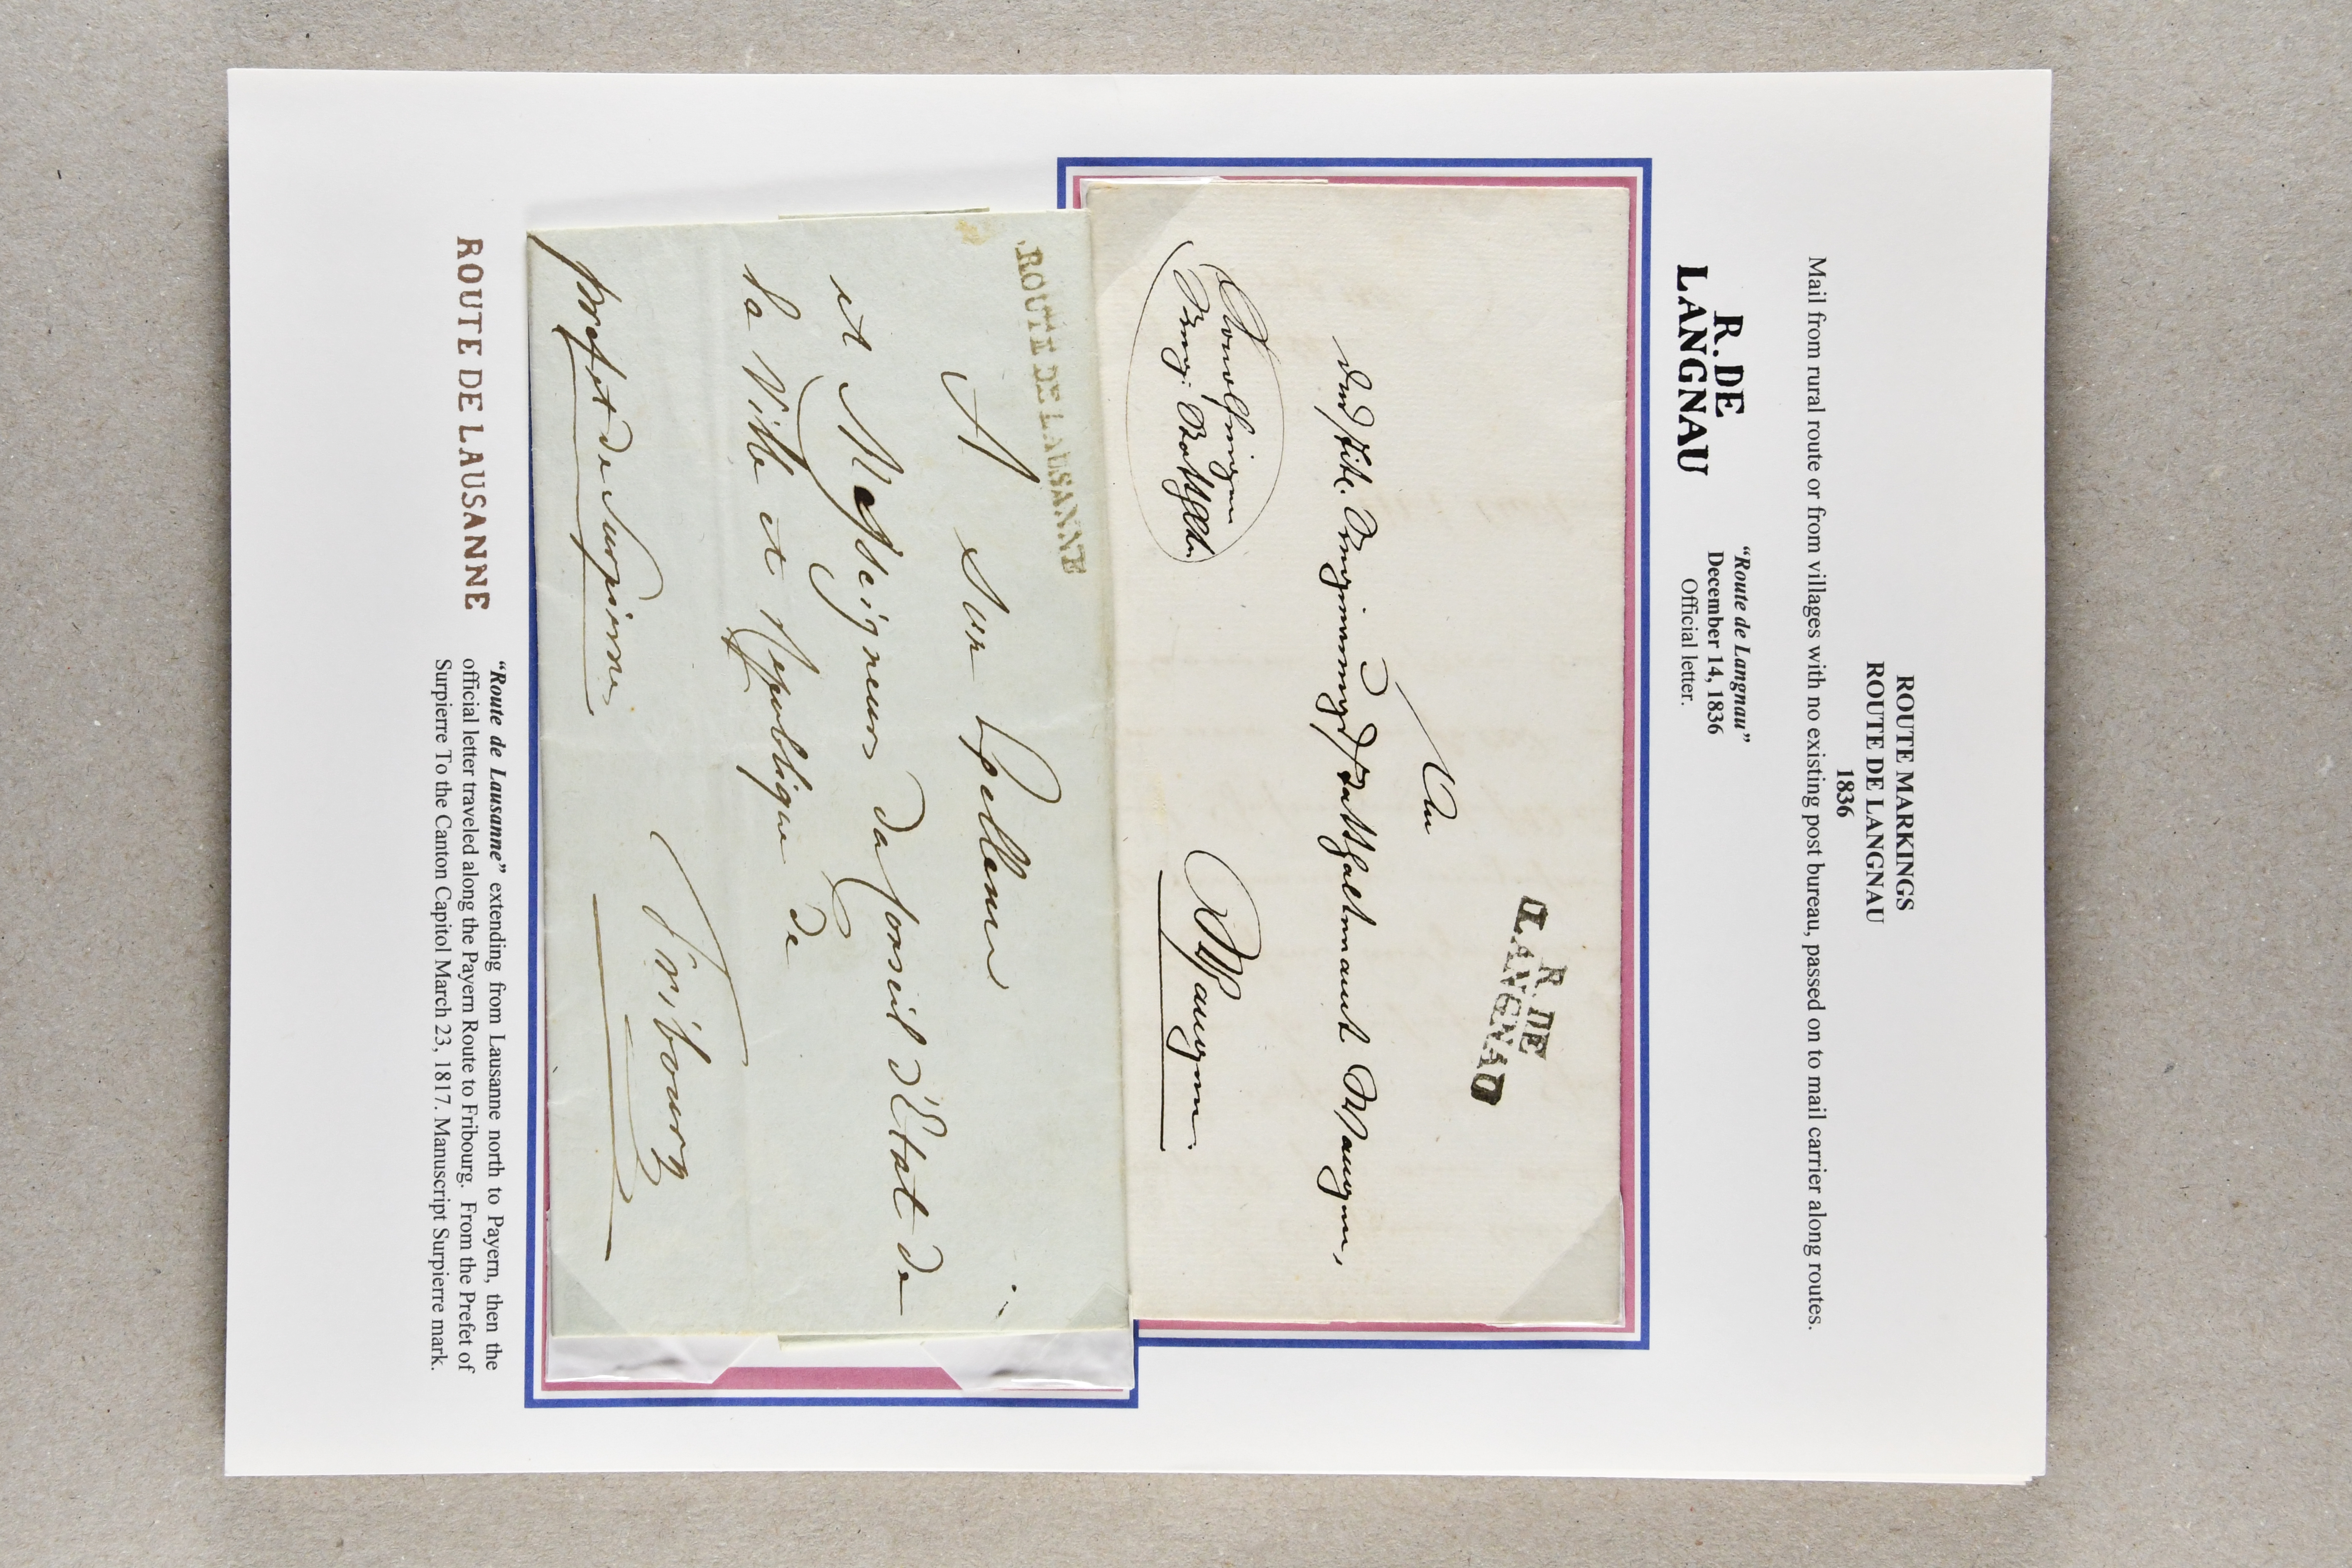 ROUTE MARKINGS
ROUTE DE LANGNAU
1836
Mail from rural route or from villages with no existing post bureau, passed on to mail carrier along routes.
R. DE
LANGNAU
“Route de Langnau”
December 14, 1836
Official letter.
R. DE
LANGNAU
An
Wangen,
Wangen.
ROUTE DE LAUSANNE
A Son Excellence
et Messeigneurs du Conseil d'Etat de
la Ville et Republique de
Fribourg
prefet de Surpierre
ROUTE DE LAUSANNE
“Route de Lausanne” extending from Lausanne north to Payern, then the
official letter traveled along the Payern Route to Fribourg. From the Prefet of
Surpierre To the Canton Capitol March 23, 1817. Manuscript Surpierre mark.